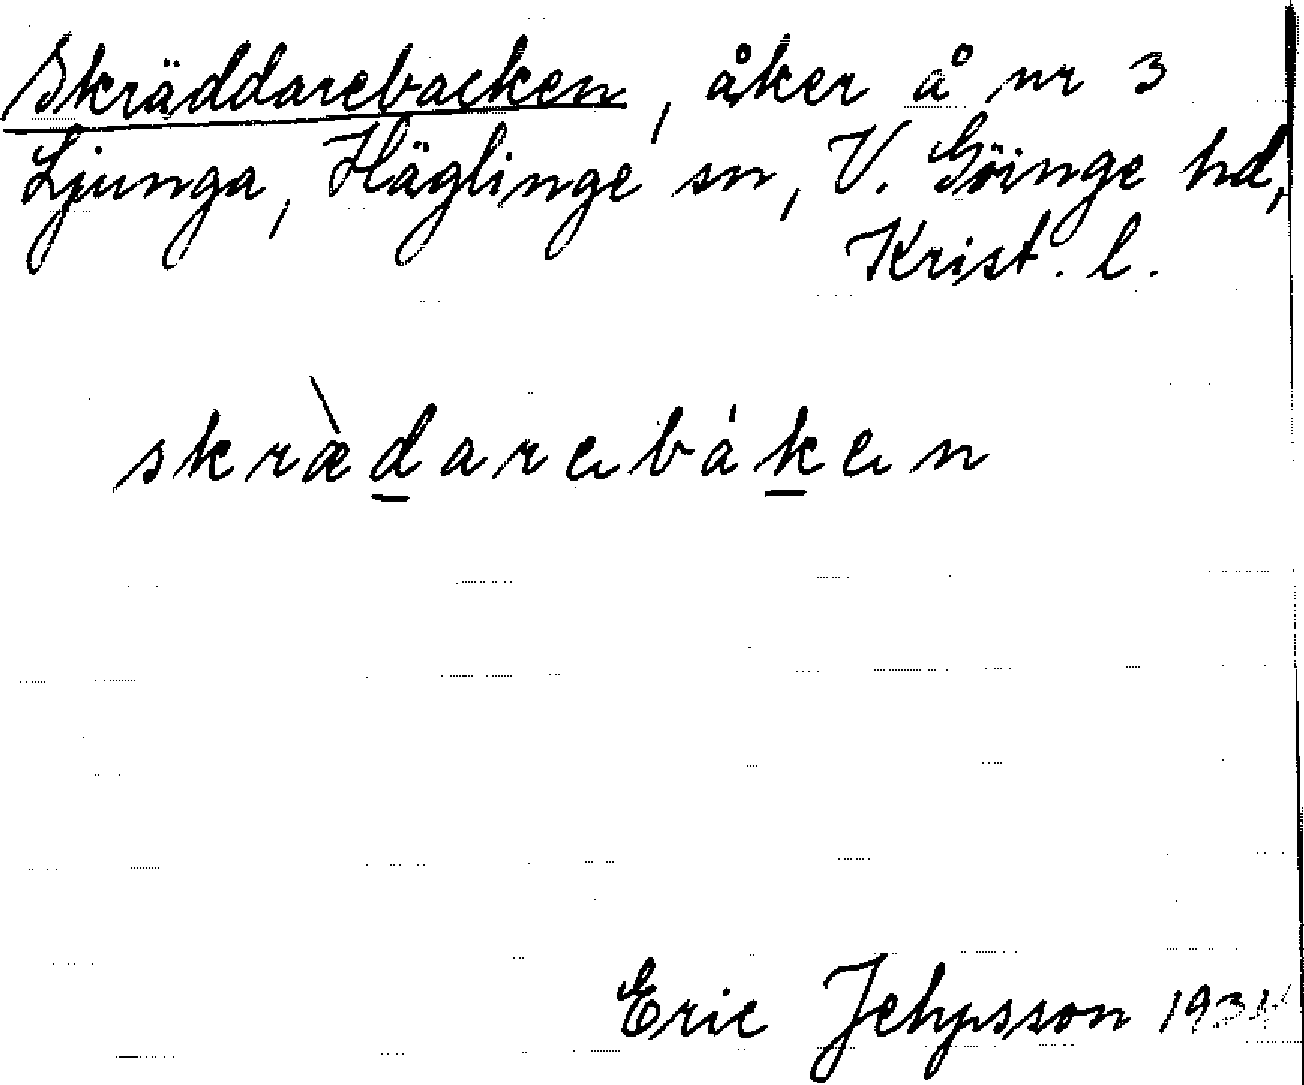 Skräddarebacken, åker å nr 3
Ljunga, Häglinge sn, V. Göinge hd,
Krist. l.
skræ̀darebáken
Eric Jepsson